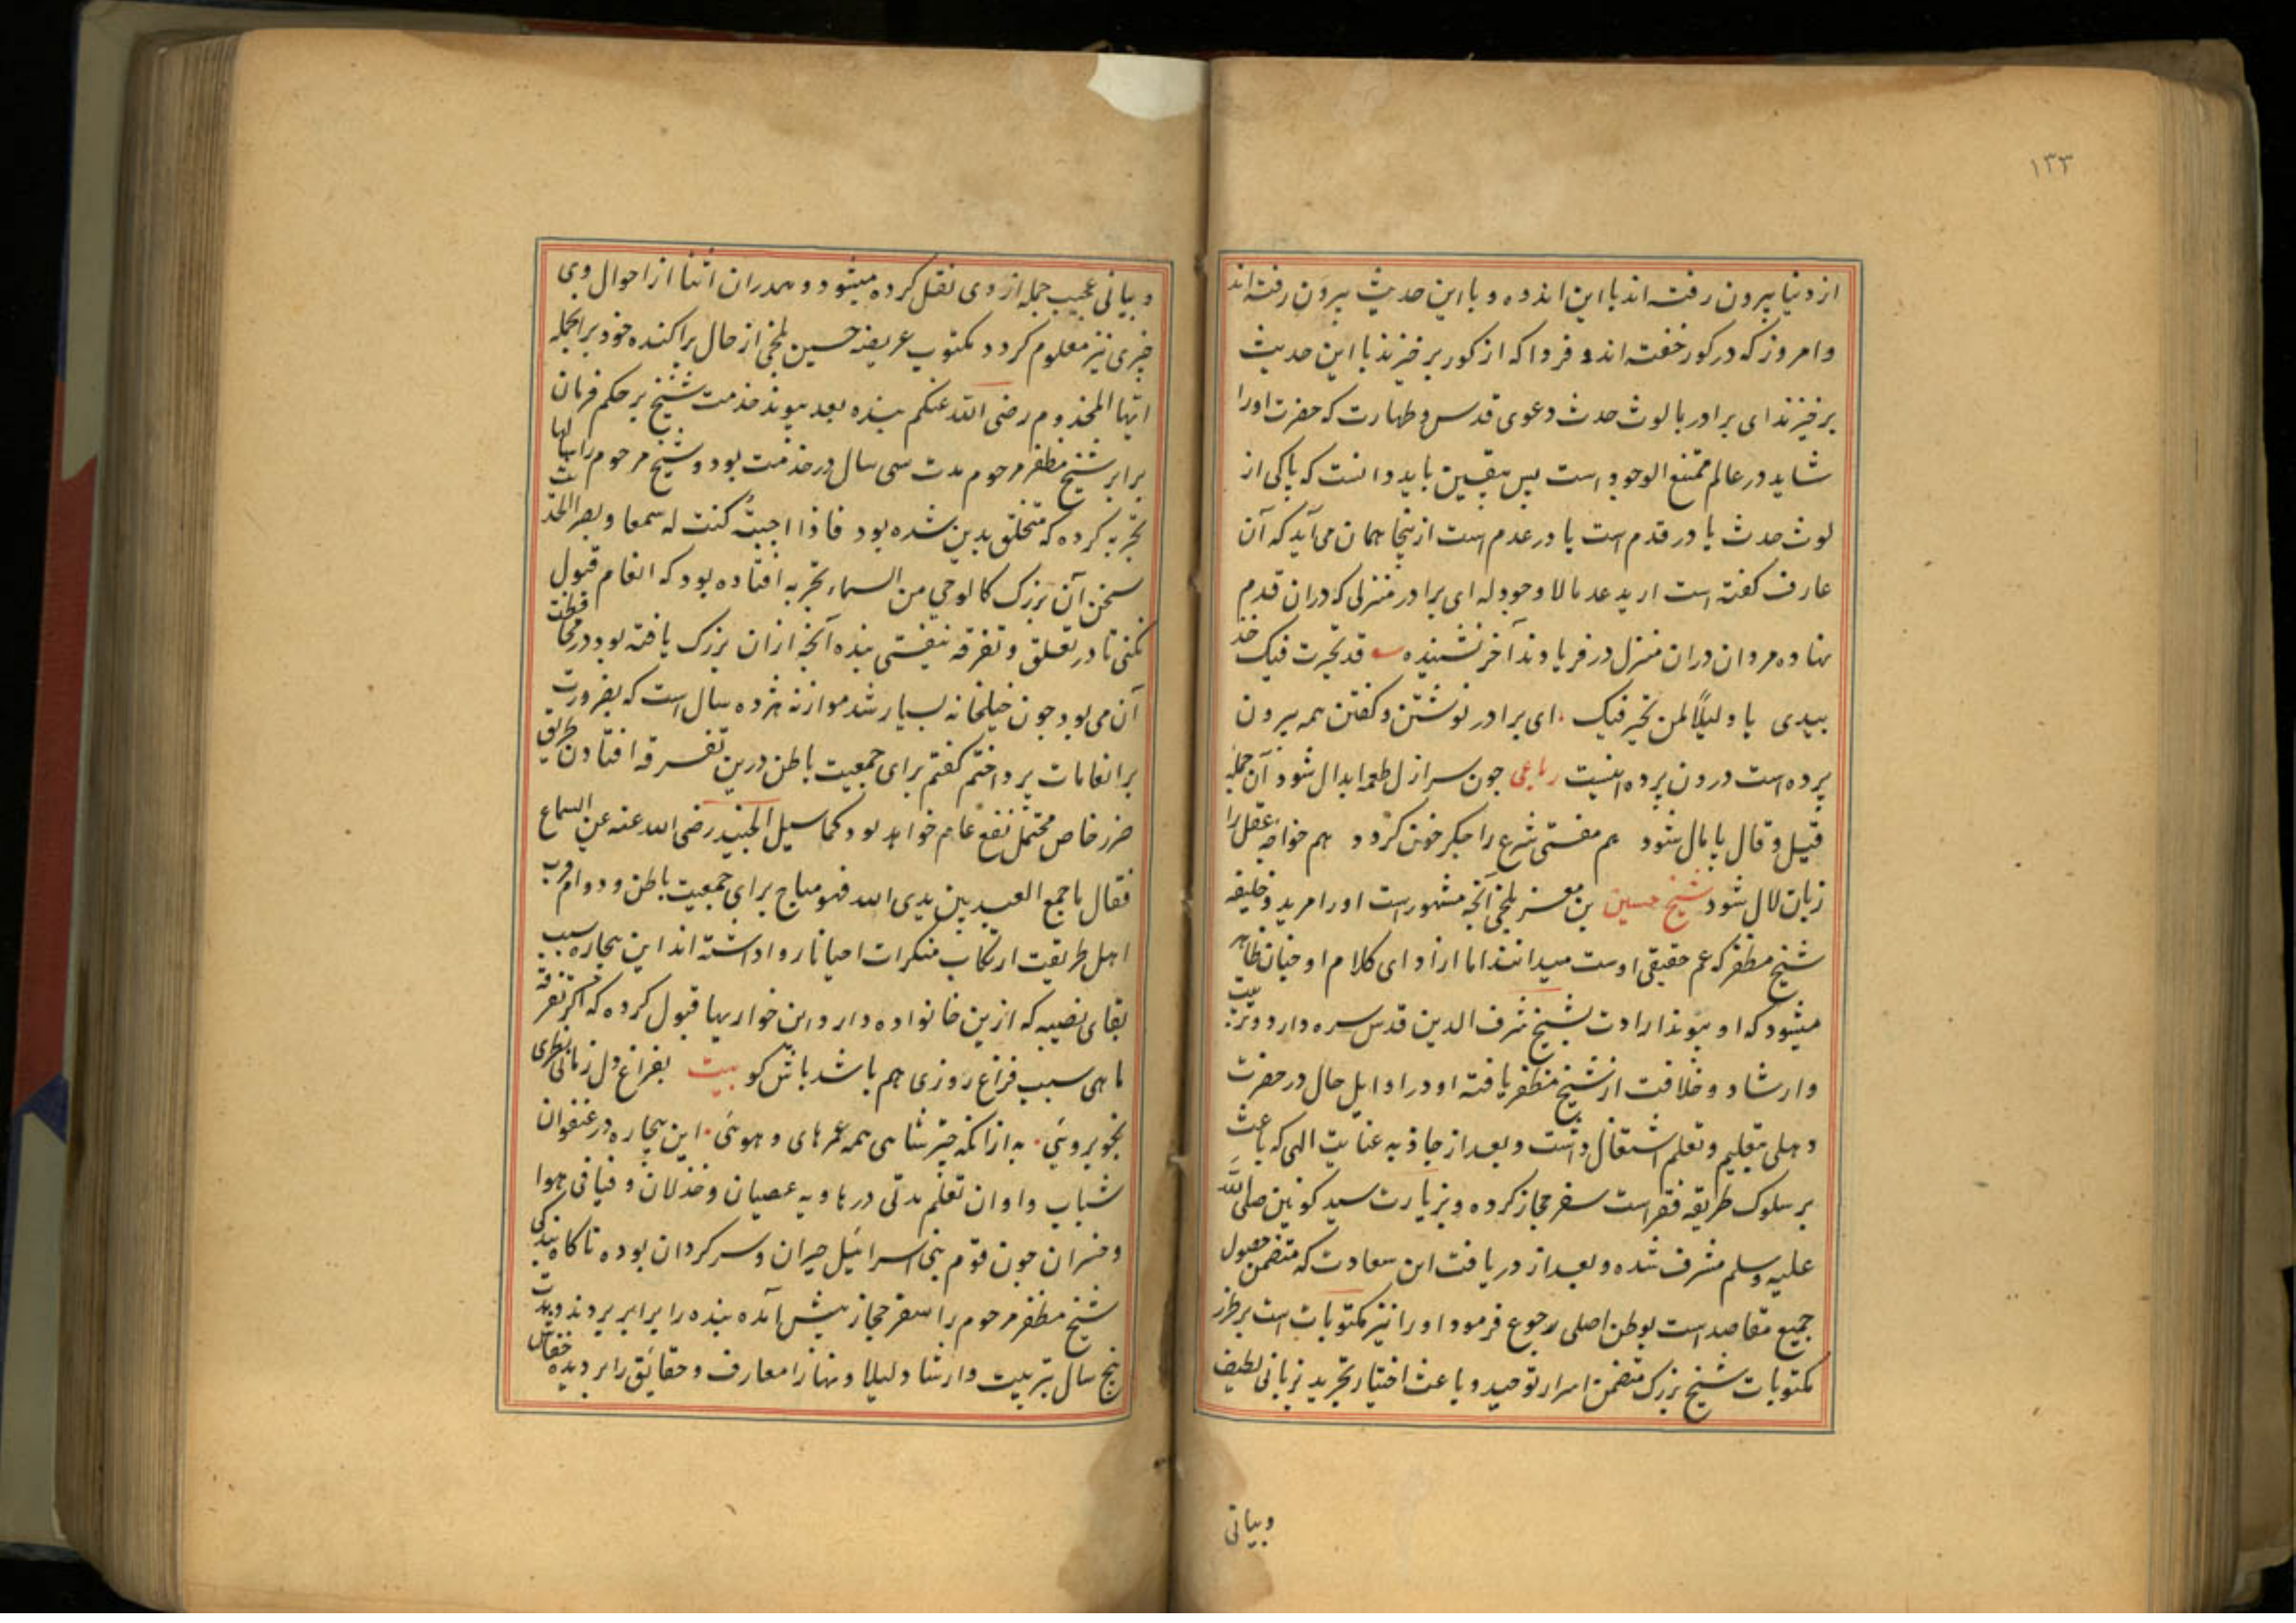 ١٣٣
از دنیا بیرون رفته اند با این انده و با این حدیث بیرون رفته اند
وامروز که در کور خفته اند و فردا که از کور برخیزند با این حدیث
برخیزند ای برادر با لوث حدث دعوی قدس و طهارت که حضرت اورا
شاید در عالم ممتنع الوجود است پس بیقین باید دانست که پاکی از
لوث حدث یا در قدم است یا در عدم است ازینجا همان می آید که آن
عارف کفته است ارید عدما لا وجود له ای برادر منزلی که دران قدم
نهاده مردان دران منزل در فریاد وند آخر نشنیده قد تحیرت فیک خذ
بیدی یا دلیلاً لمن تحیر فیک ای برادر نوشتن و کفتن همه بیرون
پرده است درون پرده اینست رباعی چون سر ازل طعمه ابدال شود آن جمله
قیل و قال پایمال شود هم مفتی شرع را جکر خون کردد هم خواجه عقل را
زبان لال شود شیخ حسین بن معز بلخی آنچه مشهور است اورا مرید و خلیفه
شیخ مظفر که عم حقیقی اوست میدانند اما از ادای کلام او چنان ظاهر
میشود که او پیوند ارادت بشیخ شرف الدین قدس سره دارد و تربیت
وارشاد و خلافت از شیخ مظفر یافته او در اوایل حال در حضرت
دهلی بتعلیم و تعلم اشتغال داشت و بعد از جاذبه عنایت الهی که باعث
بر سلوک طریقه فقر است سفر حجاز کرده و بزیارت سید کونین صلی الله
علیه وسلم مشرف شده و بعد از دریافت این سعادت که متضمن حصول
جمیع مقاصد است بوطن اصلی رجوع فرمود اورا نیز مکتوبات است بر طرز
مکتوبات شیخ بزرک متضمن اسرار توحید و باعث اختیار تجرید بزبانی لطیف
وبیانی
و بیانی عجیب جمله از وی نقل کرده میشود و همدران اثنا از احوال وی
چیزی نیز معلوم کردد مکتوب عریضه حسین بلخی از حال پراکنده خود برانجمله
ایها المخدوم رضی الله عنکم بنده بعد پیوند خدمت شیخ بر حکم فرمان
برابر شیخ مظفر مرحوم مدت سی سال در خدمت بود و شیخ مرحوم را سالها
تجربه کرده که متخلق بدین شده بود فاذا احببتُ کنت له سمعا و بصرا الحدیث
سخن آن بزرک کالوحی من السماء تجربه افتاده بود که انعام قبول
نکنی تا در تعلق و تفرقه نیفتی بنده آنچه ازان بزرک یافته بود در محافظت
آن می بود چون خیلخانه بسیار شد موازنه هژده سال است که بضرورت
بر انعامات پرداختم کفتم برای جمعیت باطن درین تفرقه افتادن طریق
ضرر خاص محتمل نفع عام خواهد بود کما سیل الجنید رضی الله عنه عن السماع
فقال ما جمع العبد بین یدی الله فهو مباح برای جمعیت باطن و دوام قرب
اهل طریقت ارتکاب منکرات احیانا روا داشته اند این بیچاره بسبب
بقای نصیبه که ازین خانواده دارد این خواریها قبول کرده که اکر تفرقه
ماهی سبب فراغ روزی هم باشد باش کو بیت بفراغ دل زمانی نظری
بخوبرویی به ازانکه چتر شاهی همه عمر های و هویی این بیچاره در عنفوان
شباب و اوان تعلم مدتی در هاویه عصیان و خذلان و فیافی هوا
و خسران چون قوم بنی اسرائیل حیران و سرکردان بوده ناکاه بندکی
شیخ مظفر مرحوم را سفر حجاز پیش آمد بنده را برابر بردند و مدت
پنج سال بتربیت وارشاد لیلا و نهارا معارف و حقایق را بر دیده خفاش